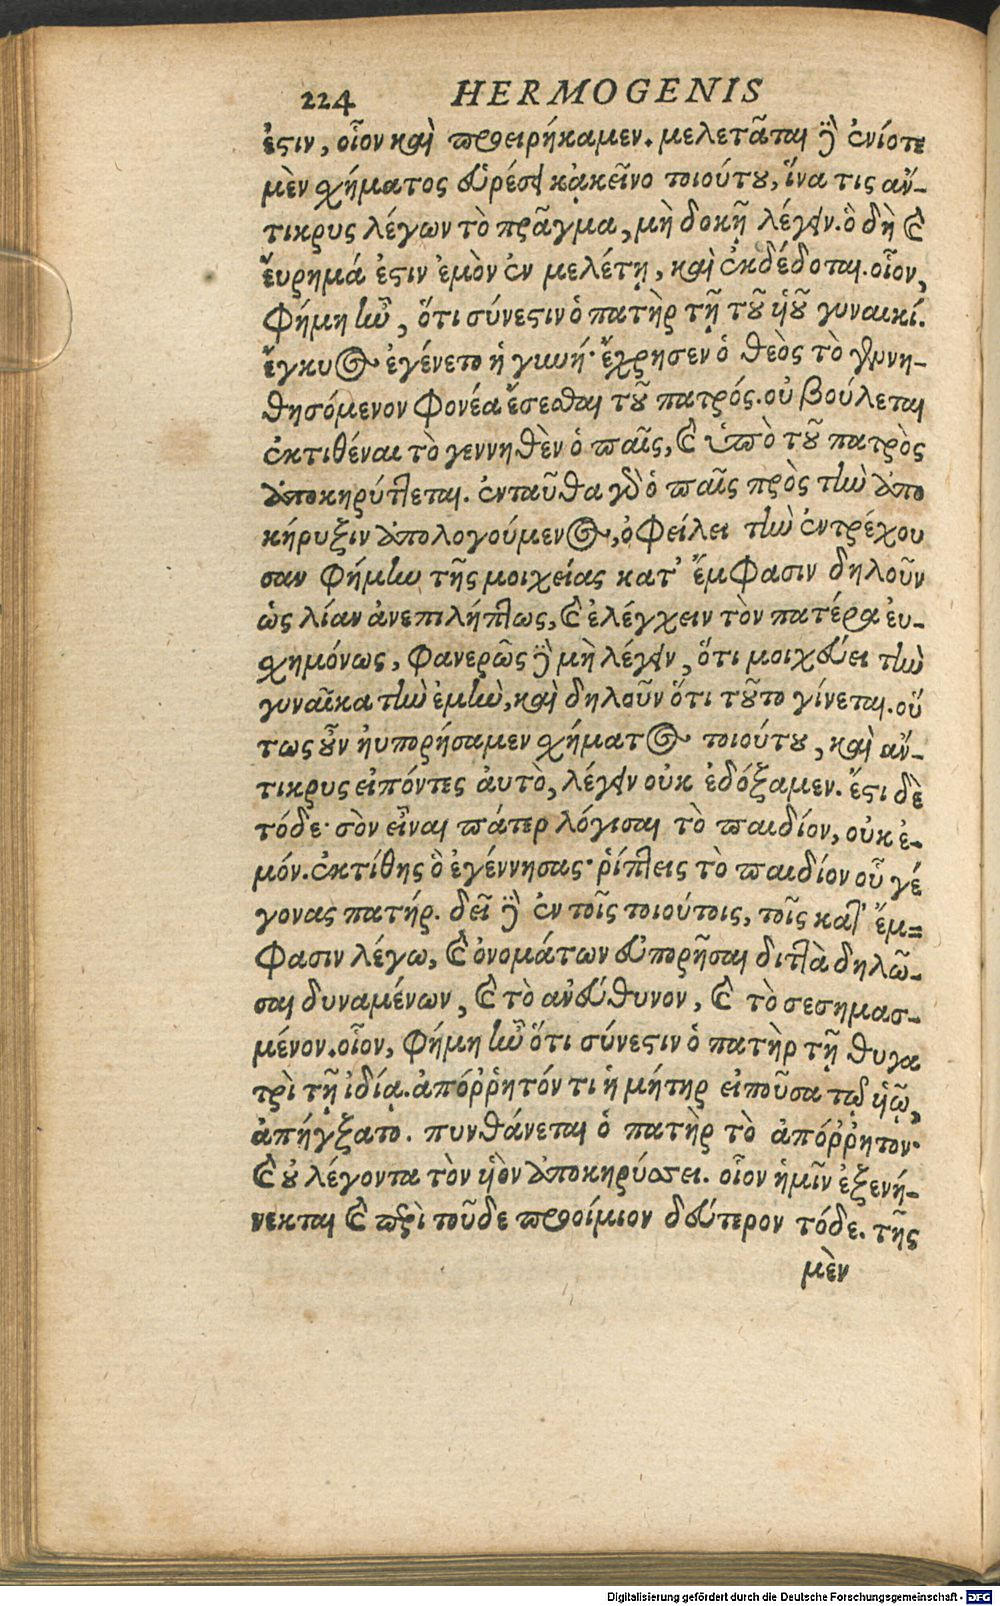 224 HERMOGENIS
ἐστιν, οἷον καὶ προειρήκαμεν. μελετᾶται δὲ ἐνίοτε
μὲν χήματος εὑρέσει κᾀκεῖνο τοιούτου, ἵνα τις ἄν-
τικρυς λέγων τὸ πρᾶγμα, μὴ δοκῇ λέγειν. ὃ δὴ καὶ
εὕρημά ἐστιν ἐμὸν ἐν μελέτῃ, καὶ ἐκδέδοται. οἷον,
Φήμη ἦν, ὅτι σύνεστιν ὁ πατὴρ τῇ τοῦ ὑοῦ γυναικί.
ἔγκυος ἐγένετο ἡ γυνή· ἔχρησεν ὁ θεὸς τὸ γεννη-
θησόμενον φονέα ἔσεσθαι τοῦ πατρός. οὐ βούλεται
ἐκτιθέναι τὸ γεννηθὲν ὁ παῖς, καὶ ὑπὸ τοῦ πατρὸς
ἀποκηρύττεται. ἐνταῦθα γὰρ ὁ παῖς πρὸς τὴν ἀπο
κήρυξιν ἀπολογούμενος, ὀφείλει τὴν ἐντρέχου
σαν φήμην τῆς μοιχείας κατ' ἔμφασιν δηλοῦν
ὡς λίαν ἀνεπιλήπτως, καὶ ἐλέγχειν τὸν πατέρα εὐ-
χημόνως, φανερῶς δὲ μὴ λέγειν, ὅτι μοιχεύει τὴν
γυναῖκα τὴν ἐμὴν, καὶ δηλοῦν ὅτι τοῦτο γίνεται. οὕ
τως οὖν ηὐπορήσαμεν χήματος τοιούτου, καὶ ἄν-
τικρυς εἰπόντες αὐτὸ, λέγειν οὐκ ἐδόξαμεν. ἔστι δὲ
τόδε· σὸν εἶναι πάτερ λόγισαι τὸ παιδίον, οὐκ ἐ-
μόν. ἐκτίθης ὃ ἐγέννησας· ῥίπτεις τὸ παιδίον οὗ γέ
γονας πατήρ. δεῖ δὲ ἐν τοῖς τοιούτοις, τοῖς κατ' ἔμ=
φασιν λέγω, καὶ ὀνομάτων εὐπορῆσαι διττὰ δηλῶ-
σαι δυναμένων, καὶ τὸ ἀνεύθυνον, καὶ τὸ σεσημασ-
μένον. οἷον, Φήμη ἦν ὅτι σύνεστιν ὁ πατὴρ τῇ θυγα
τρὶ τῇ ἰδίᾳ. ἀπόῤῥητόν τι ἡ μήτηρ εἰποῦσα τῷ ὑῷ,
ἀπήγξατο. πυνθάνεται ὁ πατὴρ τὸ ἀπόῤῥητον·
καὶ οὐ λέγοντα τὸν ὑὸν ἀποκηρύσσει. οἷον ἡμῖν ἐξενή-
νεκται καὶ περὶ τοῦδε προοίμιον δεύτερον τόδε. τῆς
μὲν
Digitalisierung gefördert durch die Deutsche Forschungsgemeinschaft - DFG